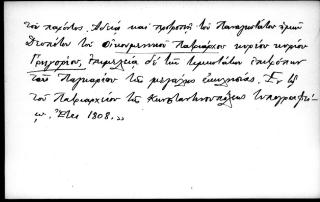 τοῦ παρόντος. Ἀδείᾳ καὶ προτροπῇ τοῦ Παναγιωτάτου ἡμῶν
Δεσπότου τοῦ Οἰκουμενικοῦ Πατριάρχου κυρίου κυρίου
Γρηγορίου, ἐπιμελείᾳ δὲ τῶν τιμιωτάτων ἐπιτρόπων
τοῦ Παγκαρίου τῆς μεγάλης ἐκκλησίας. Ἐν τῷ
τοῦ Πατριαρχείου τῆς Κωνσταντινουπόλεως τυπογραφεί-
ῳ. Ἔτει 1808.,,